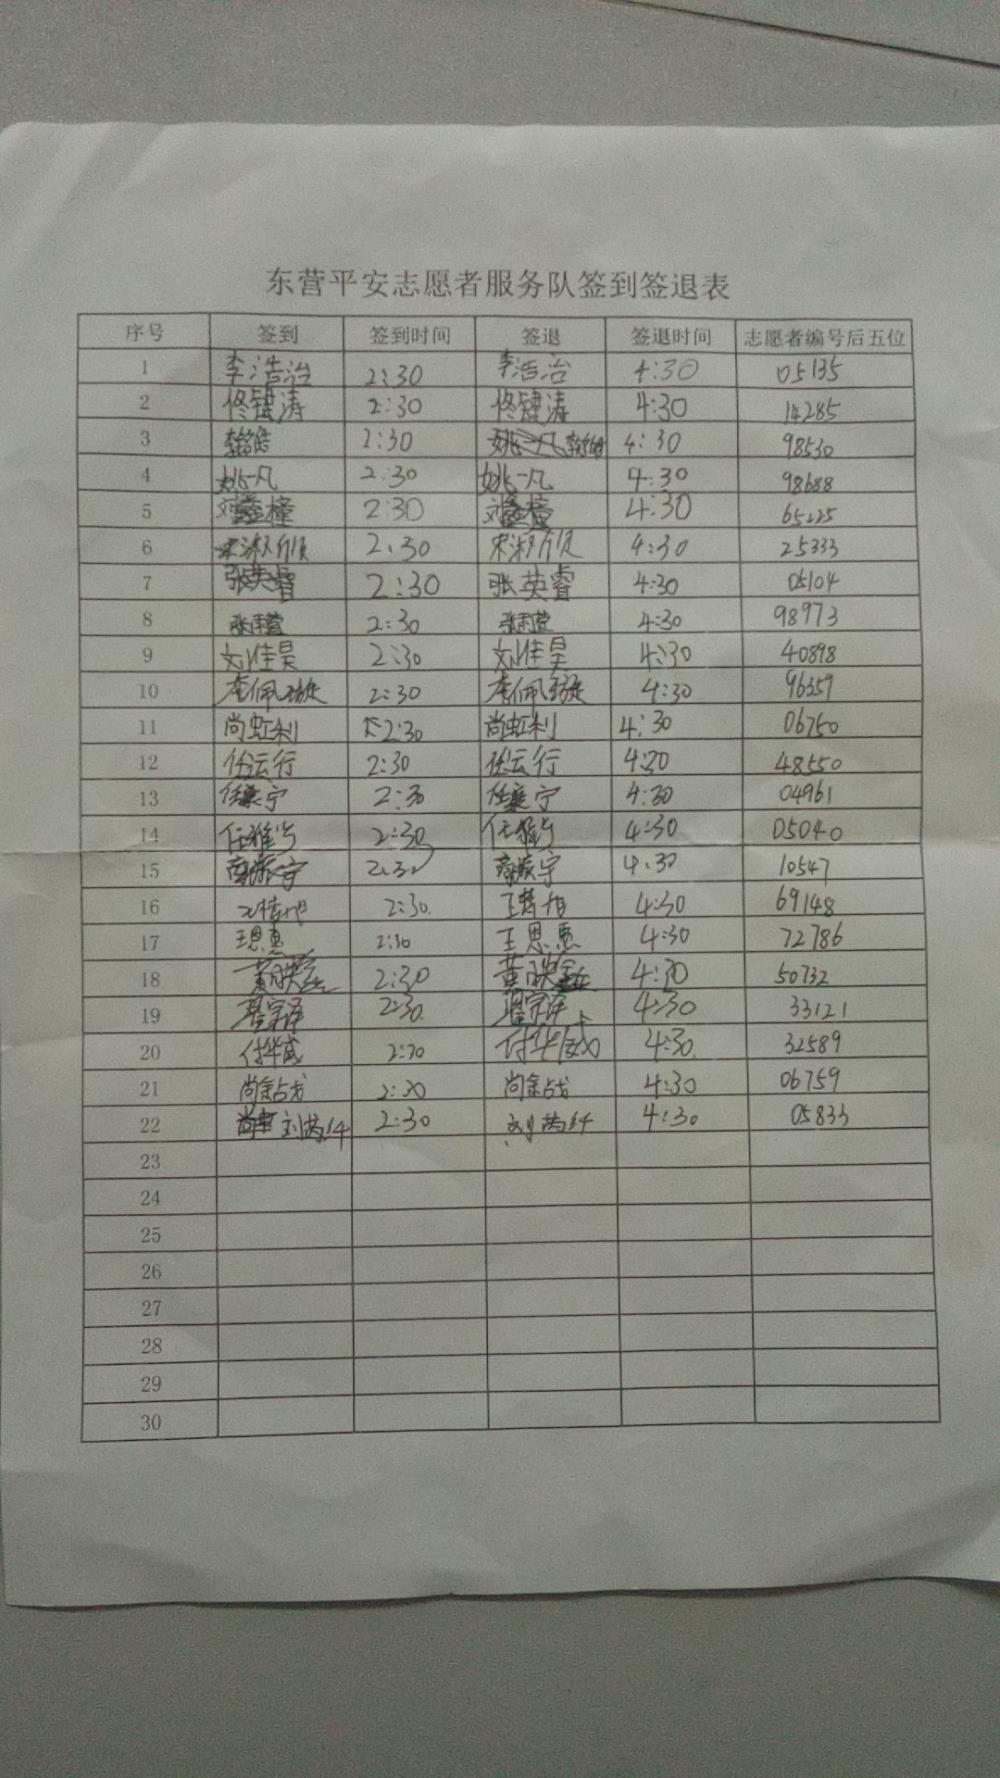 东营平安志愿者服务队签到签退表
序号 签到 签到时间 签退 签退时间 志愿者编号后五位
1 李浩冶 2:30 李浩冶 4:30 05135
2 佟键涛 2:30 佟键涛 4:30 14285
3 2:30 4:30 98530
4 姚一凡 2:30 姚一凡 4:30 98688
5 2:30 4:30 65225
6 宋淑欣 2:30 宋淑欣 4:30 25333
7 张英睿 2:30 张英睿 4:30 05104
8 张雨萱 2:30 张雨萱 4:30 98973
9 刘佳昊 2:30 刘佳昊 4:30 40898
10 李佩璇 2:30 李佩璇 4:30 96359
11 尚虹利 2:30 尚虹利 4:30 06750
12 任云行 2:30 任云行 4:30 48550
13 2:30 4:30 04961
14 2:30 4:30 05040
15 2:30 4:30 10547
16 2:30 4:30 69148
17 王思惠 2:30 王思惠 4:30 72786
18 2:30 4:30 50732
19 2:30 4:30 33121
20 付华威 2:30 付华威 4:30 32589
21 2:30 4:30 06759
22 2:30 4:30 05833
23
24
25
26
27
28
29
30